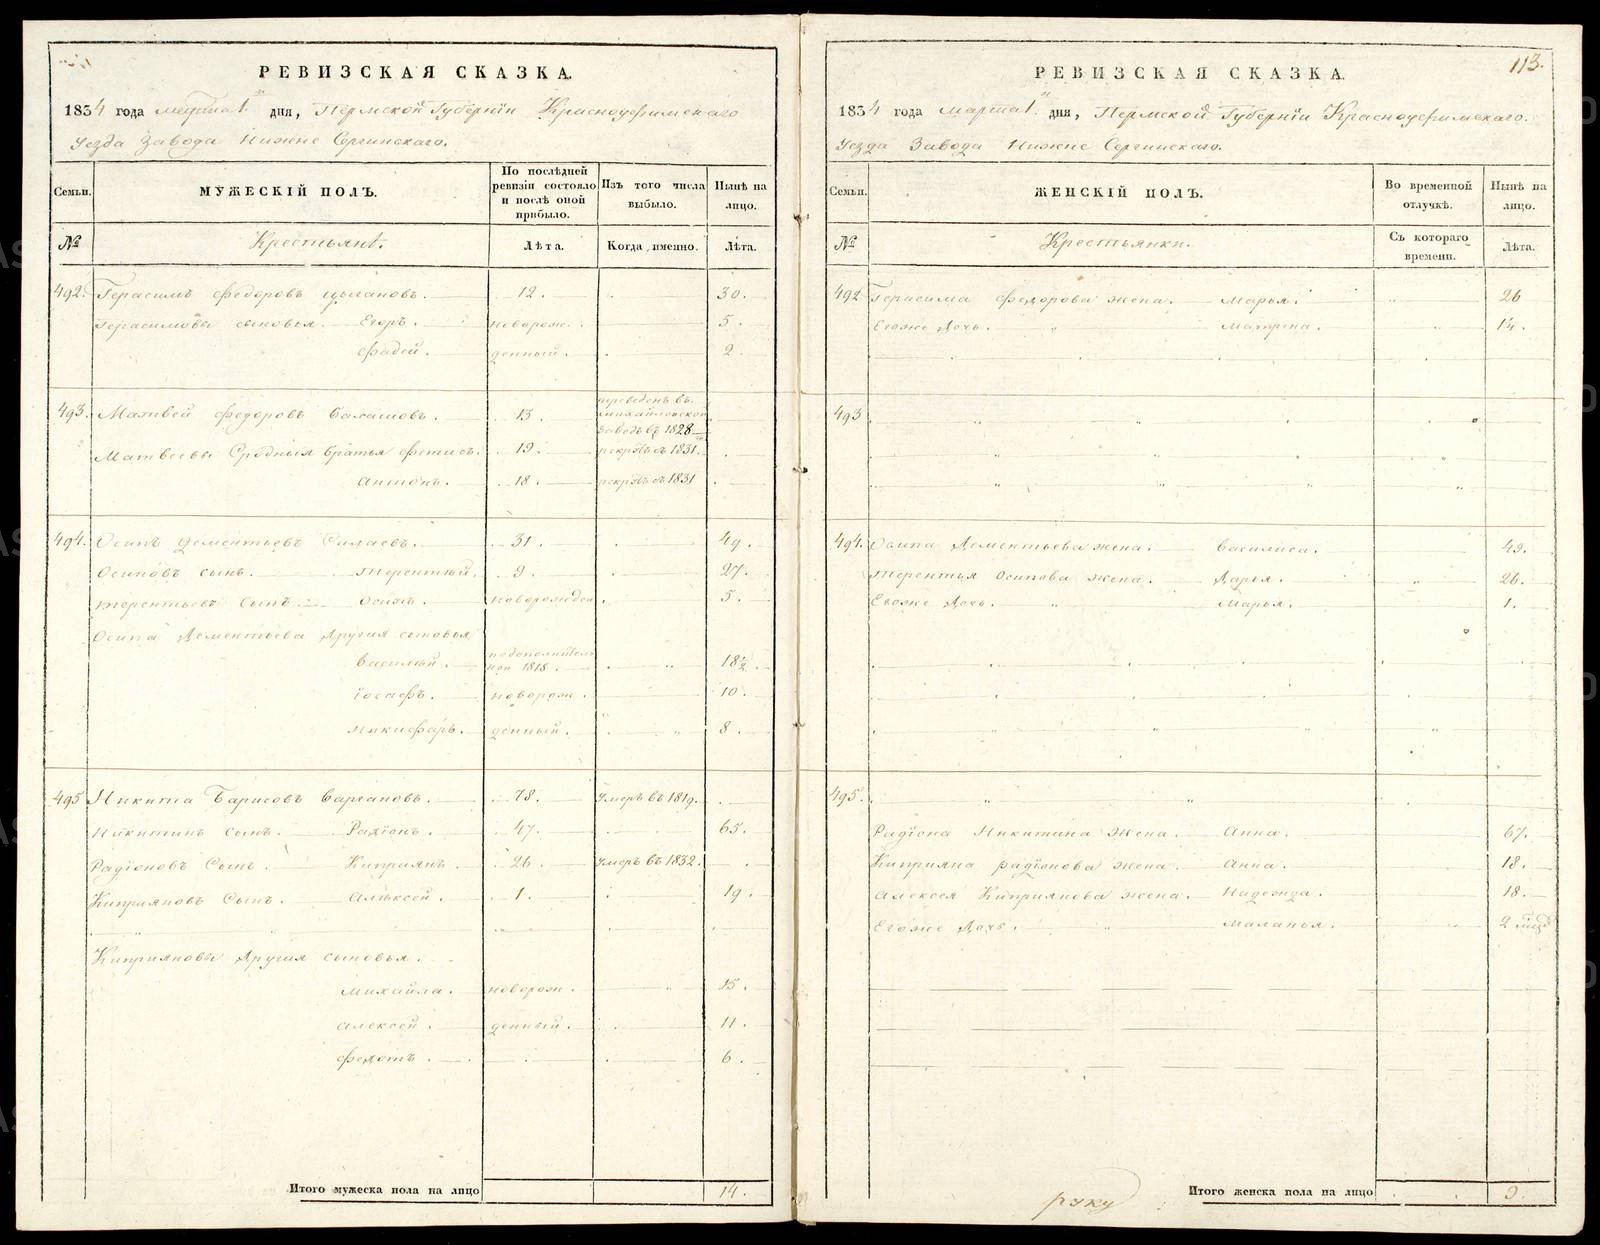 РЕВИЗСКАЯ СКАЗКА.
1834 года марта 1 дня, Пермской Губернїи Красноуфимскаго
уезда Завода Нижне Сергинскаго.
Семьи. МУЖЕСКІЙ ПОЛЪ. По послѣдней ревизіи состояло и послѣ оной прибыло. Изъ того числа выбыло. Нынѣ на лицо.
№ Крестьянѣ. Лѣта. Когда именно. Лѣта.
492. Герасимъ Федоровъ Цыгановъ. 12. 30.
Герасимовы сыновья. Егоръ. новорож. 5.
Фадей. денный. 2.
493. Матвей Федоровъ Балашовъ. 13. переведенъ въ Михайловской заводъ въ 1828
Матвеевы Сродныя братья Фетисъ. 19. рекрутъ съ 1831.
Антонъ. 18. рекрутъ съ 1831
494. Осипъ Дементьевъ Силаевъ. 31. 49.
Осиповъ сынъ. Терентїй. 9. 27.
Терентьевъ Сынъ Осипъ. новорожден. 5.
Осипа Дементьева другия сыновья
Василїй. 1818. 18½.
Іосафъ. новорож. 10.
Никифаръ. денный. 8.
495 Никита Барисовъ Вargановъ. 73. умеръ въ 1819.
Никитинъ сынъ. Радїонъ. 47. 65.
Радїоновъ Сынъ. Киприянъ. 26 умеръ въ 1832.
Киприяновъ Сынъ. Алѣксей. 1. 19.
Киприяновы другия сыновья.
Михайла. новорож. 15.
Алексей. денный. 11.
Федотъ. 6.
Итого мужеска пола на лицо 14.
113.
РЕВИЗСКАЯ СКАЗКА.
1834 года марта 1 дня, Пермской Губернїи Красноуфимскаго.
уезда Завода Нижне Сергинскаго.
Семьи. ЖЕНСКІЙ ПОЛЪ. Во временной отлучкѣ. Нынѣ на лицо.
№ Крестьянки. Съ котораго времени. Лѣта.
492 Герасима Федорова жена. Марья. 26
Егоже Дочь. Матрена.
493
494. Осипа Дементьева жена. Василиса. 49.
Терентья Осипова жена. Дарья. 26.
Егоже Дочь. Марья. 1.
495.
Радїона Никитина жена. Анна. 67.
Киприяна радїонова жена. Анна. 18.
Алексея Киприянова жена. Надежда. 18.
Егоже Дочь. Маланья. 2
руку
Итого женска пола на лицо 9.